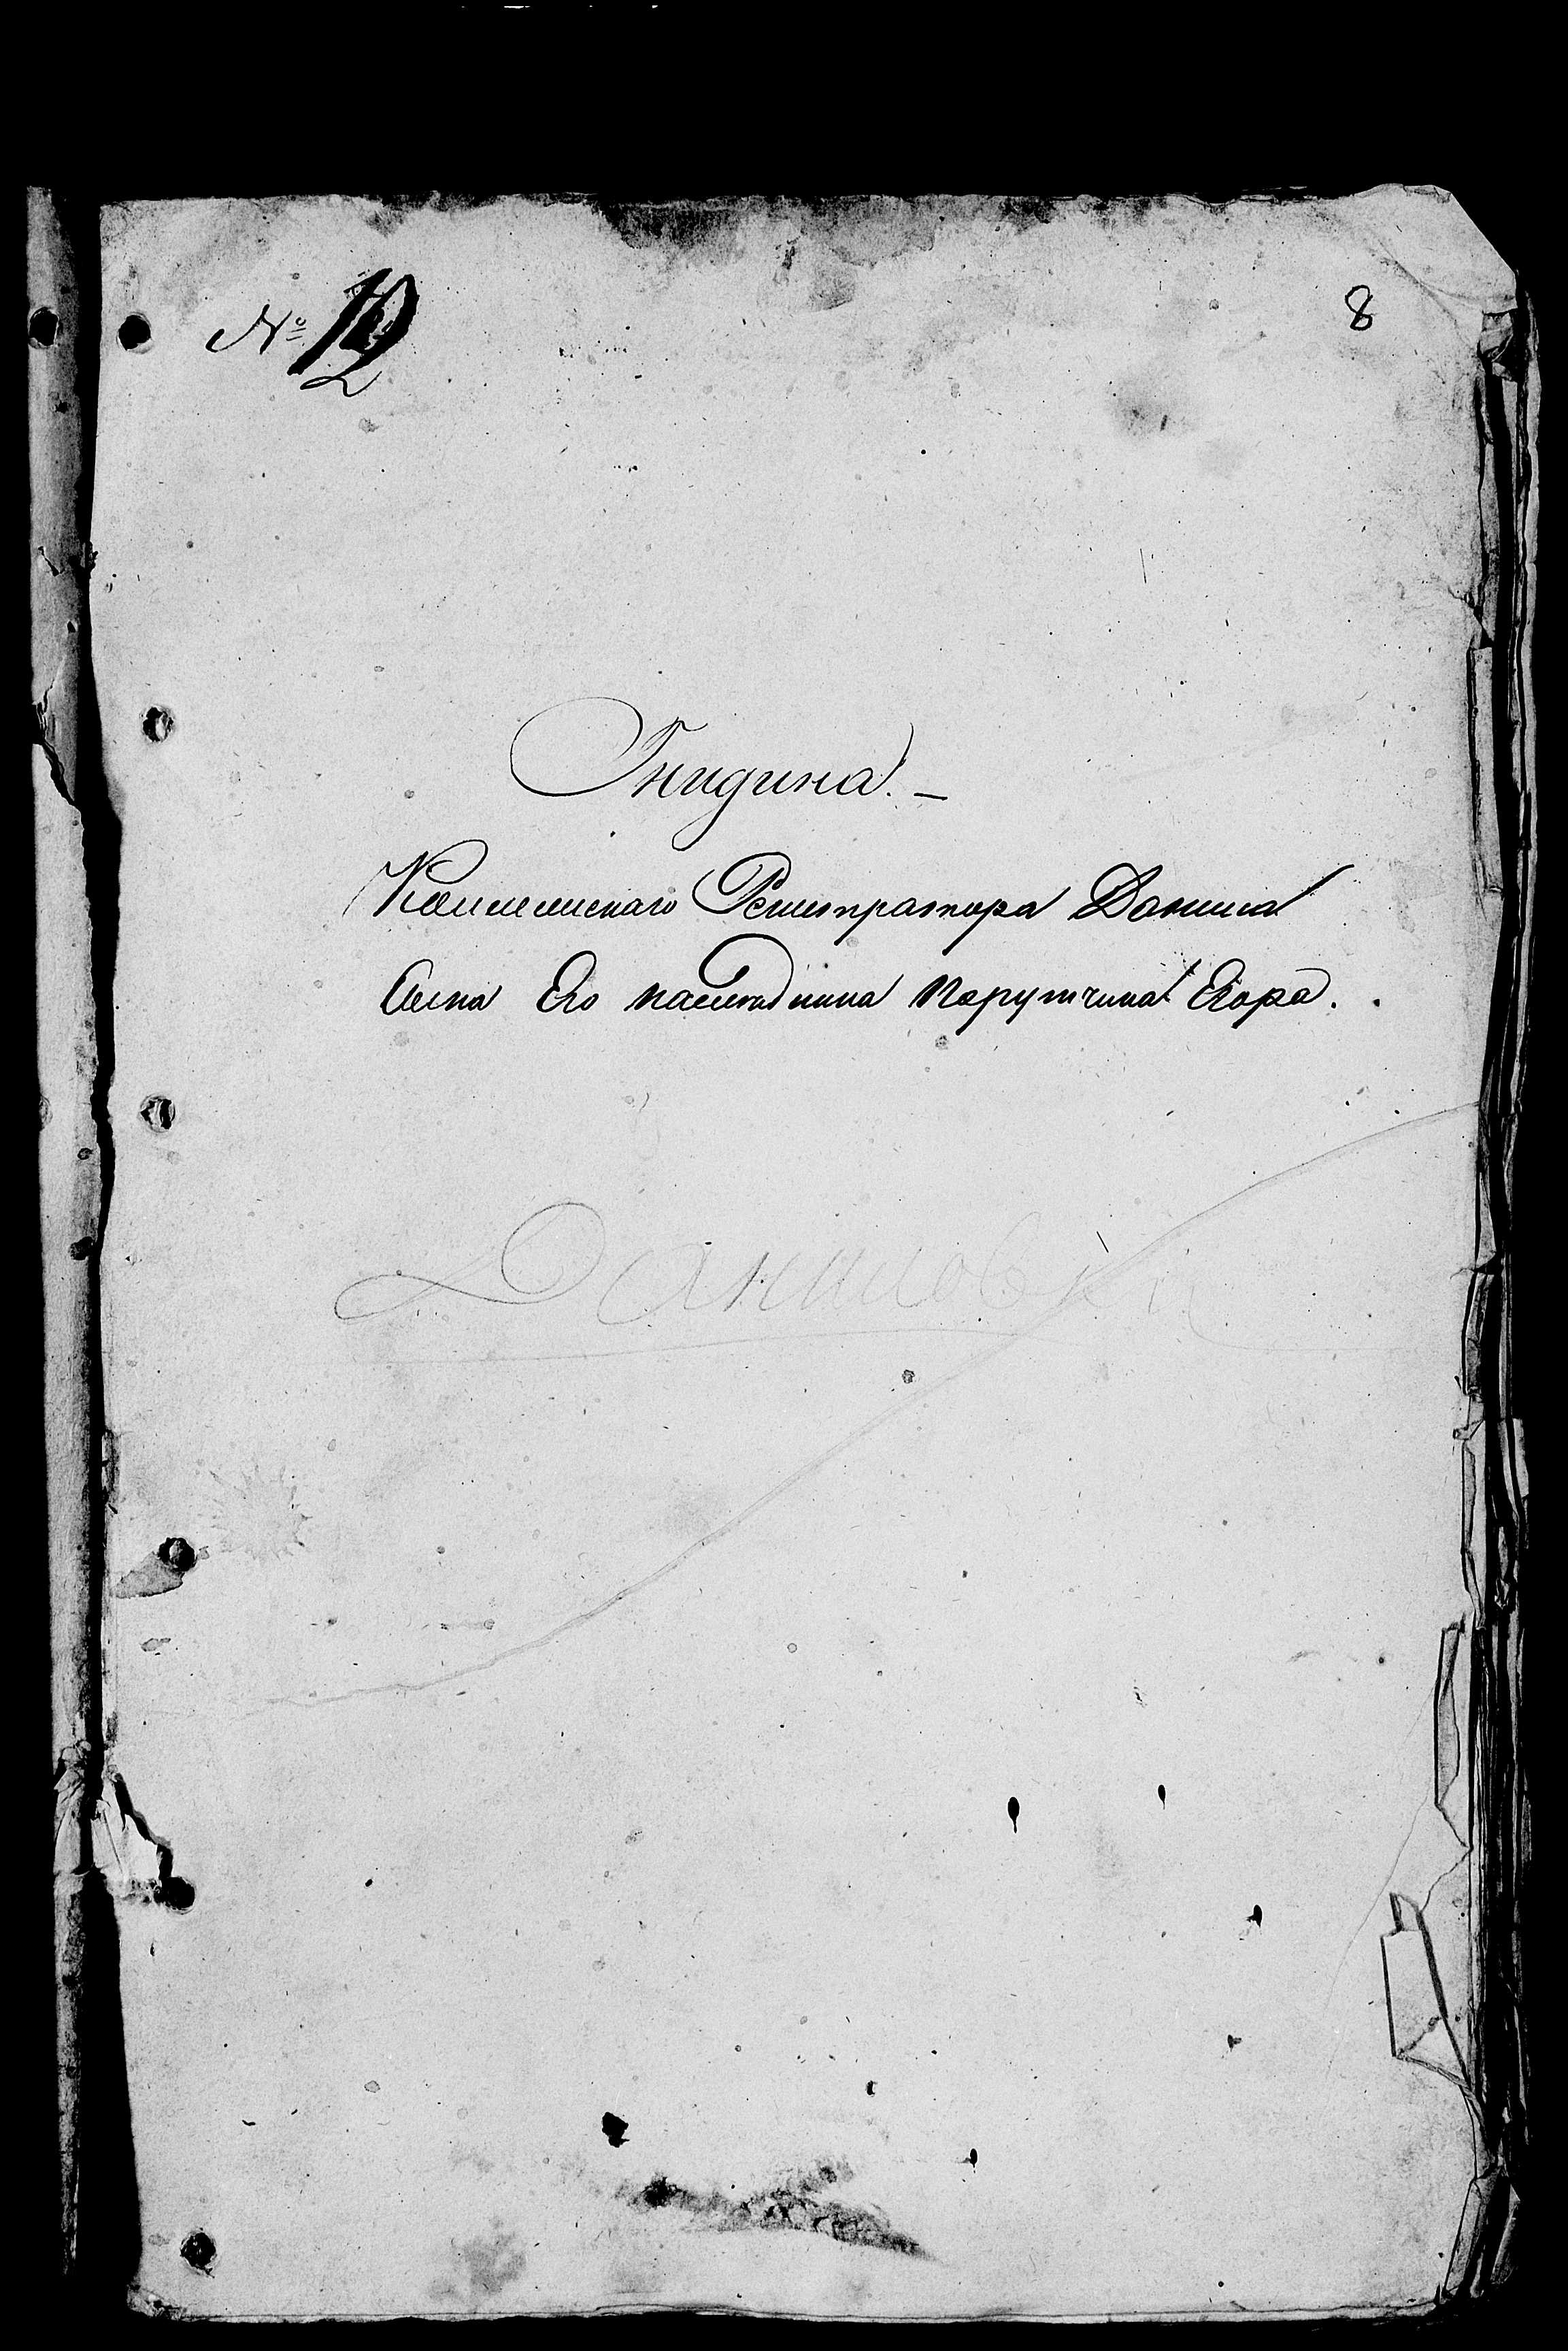 № 12
8
Гнидина. –
Коллежскаго Регистратора Данила
Сына Его наследника Порутчика Егора.
Даниловки